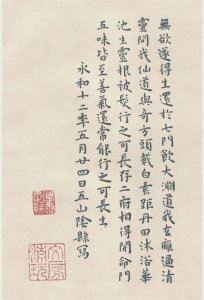 無欲遂得生還於七門飲大淵道我玄膺過清
靈問我仙道與奇方頭載白素距丹田沐浴華
池生靈根被髮行之可長存二府相得開命門
五味皆至善氣還常能行之可長生
永和十二年五月廿四日五山陰縣寫